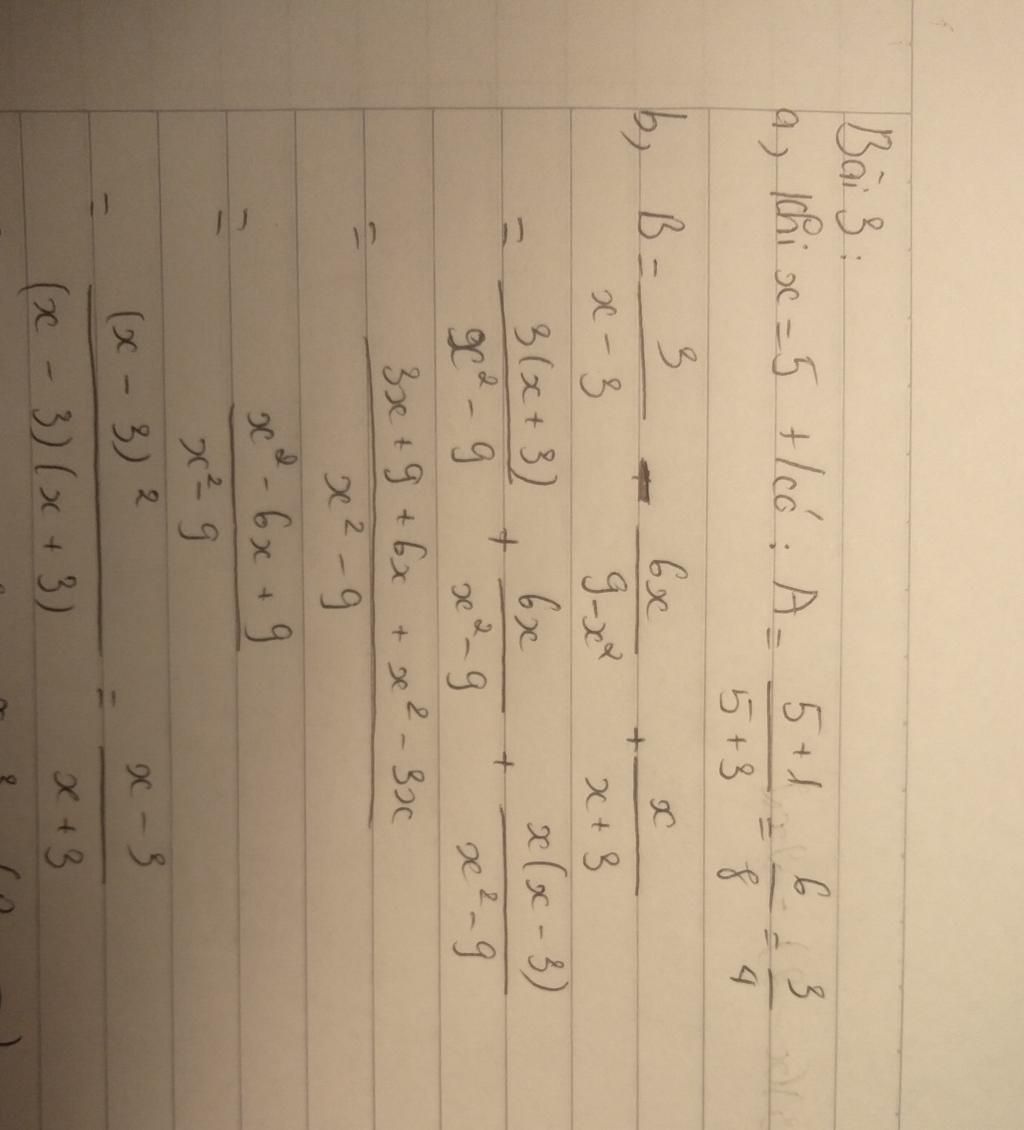 Bài 3 :
a, Khi x = 5 t/có : A = (5 + 1)/(5 + 3) = 6/8 = 3/4
b, B = 3/(x - 3) - 6x/(9 - x²) + x/(x + 3)
= 3(x + 3)/(x² - 9) + 6x/(x² - 9) + x(x - 3)/(x² - 9)
= (3x + 9 + 6x + x² - 3x)/(x² - 9)
= (x² - 6x + 9)/(x² - 9)
=
= (x - 3)²/((x - 3)(x + 3)) = (x - 3)/(x + 3)